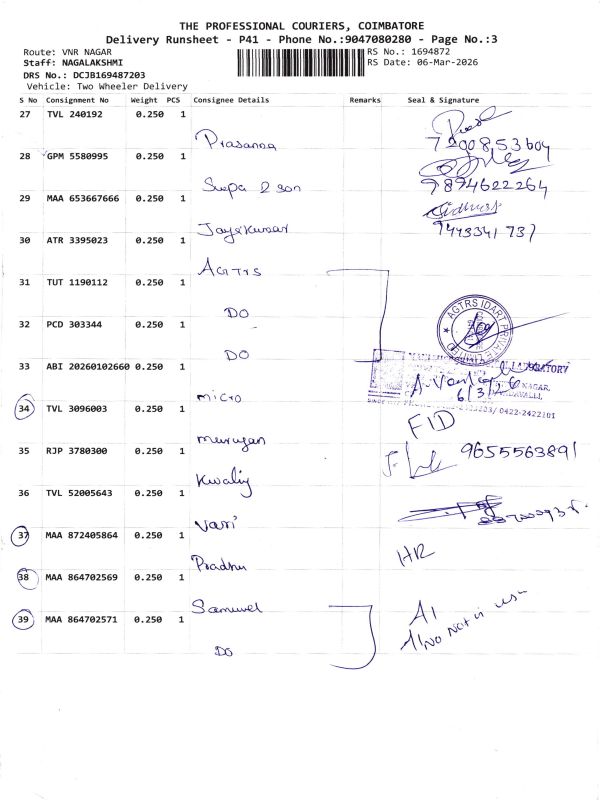 THE PROFESSIONAL COURIERS, COIMBATORE
Delivery Runsheet - P41 - Phone No.:9047080280 - Page No.:3
Route: VNR NAGAR RS No.: 1694872
Staff: NAGALAKSHMI RS Date: 06-Mar-2026
DRS No.: DCJB169487203
Vehicle: Two Wheeler Delivery
S No Consignment No Weight PCS Consignee Details Remarks Seal & Signature
27 TVL 240192 0.250 1
Prasanna 7200853604
28 GPM 5580995 0.250 1
Supa 2 son 9894622264
29 MAA 653667666 0.250 1
Jayakumar 9443341737
30 ATR 3395023 0.250 1
AGTRS
31 TUT 1190112 0.250 1
DO
32 PCD 303344 0.250 1
AGTRS IDART PRIVATE LIMITED
DO
33 ABI 20260102660 0.250 1
6/3/26
micro
0422-2422101
34 TVL 3096003 0.250 1
FID
murugan
35 RJP 3780300 0.250 1
9655563891
Kwality
36 TVL 52005643 0.250 1
Vasi
37 MAA 872405864 0.250 1
HR
Pradhu
38 MAA 864702569 0.250 1
Samuvel
39 MAA 864702571 0.250 1
AI
No Not in use
DO